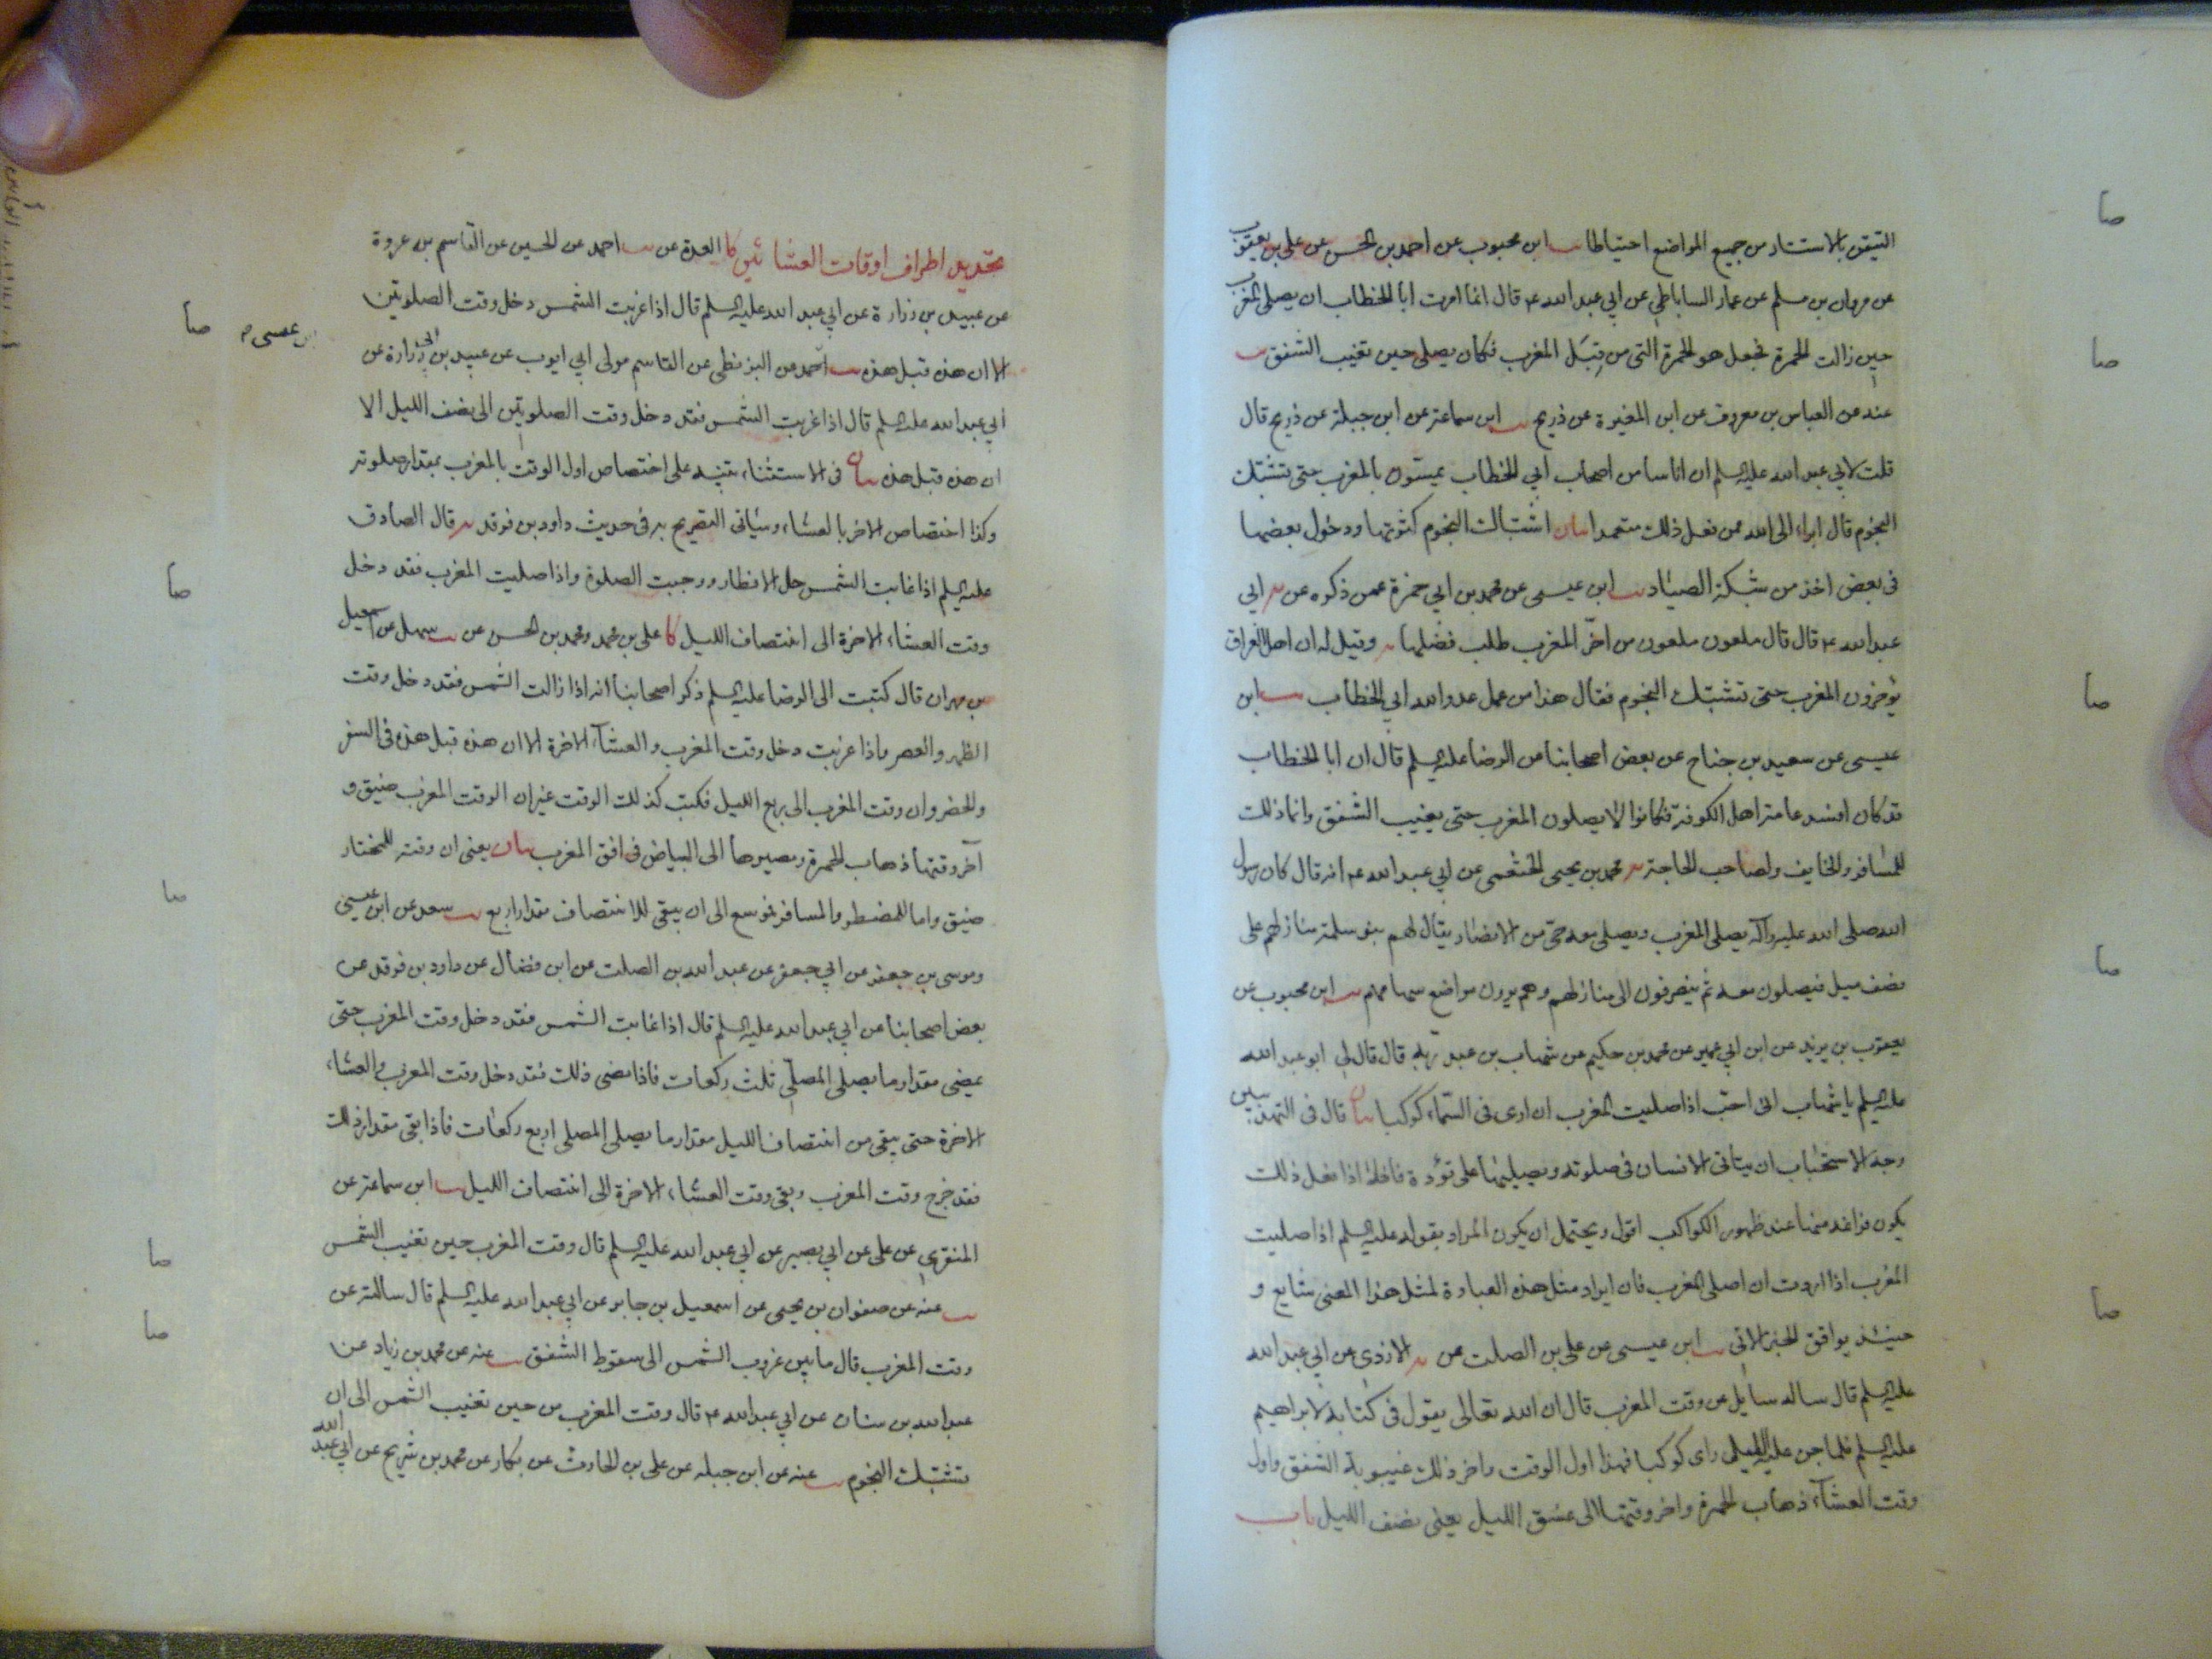 التيقن بالاستتار من جميع المواضع احتياطا يب ابن محبوب عن احمد بن الحسن عن علي بن يعقوب
عن مروان بن مسلم عن عمار الساباطي عن ابي عبد الله ع قال انما امرت ابا الخطاب ان يصلي المغرب
حين زالت الحمرة فجعل هو الحمرة التي من قِبَل المغرب فكان يصلي حين تغيب الشفق يب
عنه عن العباس بن معروف عن ابن المغيرة عن ذريح يب ابن سماعة عن ابن جبلة عن ذريح قال
قلت لابي عبد الله عليه السلم ان اناسا من اصحاب ابي الخطاب يمسون بالمغرب حتى تشتبك
النجوم قال ابراء الى الله ممن فعل ذلك متعمدا بيان اشتباك النجوم كثرتها ودخول بعضها
في بعض اخذ من شبكة الصياد يب ابن عيسى عن محمد بن ابي حمزة عمن ذكره عن يه ابي
عبد الله ع قال قال ملعون ملعون من اخّر المغرب طلب فضلها يه وقيل له ان اهل العراق
يؤخرون المغرب حتى تشتبك النجوم فقال هذا من عمل عدو الله ابي الخطاب يب ابن
عيسى عن سعيد بن جناح عن بعض اصحابنا عن الرضا عليه السلم قال ان ابا الخطاب
قد كان افسد عامة اهل الكوفة فكانوا لا يصلون المغرب حتى يغيب الشفق وانما ذلك
للمسافر والخايف ولصاحب الحاجة يه محمد بن يحيى الخثعمي عن ابي عبد الله ع انه قال كان رسول
الله صلى الله عليه وآله يصلي المغرب ويصلي معه حي من الانصار يقال لهم بنو سلمة منازلهم على
نصف ميل فيصلون معه ثم ينصرفون الى منازلهم وهم يرون مواضع سهامهم يب ابن محبوب عن
يعقوب بن يزيد عن ابن ابي عمير عن محمد بن حكيم عن شهاب بن عبد ربه قال قال لي ابو عبد الله
عليه السلم يا شهاب اني احبّ اذا صليت المغرب ان ارى في السّماء كوكبا بيان قال في التهذيبين
وجه الاستحباب ان يتأنى الانسان في صلوته ويصليها على تؤدة فانه اذا فعل ذلك
يكون فراغه منها عند ظهور الكواكب اقول ويحتمل ان يكون المراد بقوله عليه السلم اذا صليت
المغرب اذا اردت ان اصلي المغرب فان ايراد مثل هذه العبارة لمثل هذا المعنى شايع و
حينئذ يوافق الخبر الاتي يب ابن عيسى عن علي بن الصلت عن يه الازدي عن ابي عبد الله
عليه السلم قال ساله سايل عن وقت المغرب قال ان الله تعالى يقول في كتابه لابراهيم
عليه السلم فلما جن عليه الليل راى كوكبا فهذا اول الوقت واخر ذلك غيبوبة الشفق واول
وقت العشآء ذهاب الحمرة واخر وقتها الى غسق الليل يعني نصف الليل باب
تحديد اطراف اوقات العشائين كا العدة عن يب احمد عن الحسين عن القاسم بن عروة
عن عبيد بن زرارة عن ابي عبد الله عليه السلم قال اذا غربت الشمس دخل وقت الصلوتين
الا ان هذه قبل هذه يب احمد عن البزنطي عن القاسم مولى ابي ايوب عن عبيد بن زرارة عن
ابي عبد الله عليه السلم قال اذا غربت الشمس فقد دخل وقت الصلوتين الى نصف الليل الا
ان هذه قبل هذه بيان في الاستثناء تنبيه على اختصاص اول الوقت بالمغرب بمقدار صلوته
وكذا اختصاص الاخر بالعشاء وسياتي التصريح به في حديث داود بن فرقد يه قال الصادق
عليه السلم اذا غابت الشمس حل الافطار ووجبت الصلوة واذا صليت المغرب فقد دخل
وقت العشاء الاخرة الى انتصاف الليل كا علي بن محمد ومحمد بن الحسن عن يب سهل عن اسمعيل
بن مهران قال كتبت الى الرضا عليه السلم ذكر اصحابنا انه اذا زالت الشمس فقد دخل وقت
الظهر والعصر واذا غربت دخل وقت المغرب والعشآء الاخرة الا ان هذه قبل هذه في السفر
والحضر وان وقت المغرب الى ربع الليل فكتب كذلك الوقت غير ان الوقت المغرب ضيق و
آخر وقتها ذهاب الحمرة ومصيرها الى البياض في افق المغرب بيان يعني ان وقته للمختار
ضيق واما للمضطر والمسافر فموسع الى ان يبقى للانتصاف مقدار اربع يب سعد عن ابن عيسى
وموسى بن جعفر عن ابي جعفر عن عبد الله بن الصلت عن ابن فضال عن داود بن فرقد عن
بعض اصحابنا عن ابي عبد الله عليه السلم قال اذا غابت الشمس فقد دخل وقت المغرب حتى
يمضي مقدار ما يصلي المصلّي ثلث ركعات فاذا مضى ذلك فقد دخل وقت المغرب والعشاء
الاخرة حتى يبقى من انتصاف الليل مقدار ما يصلي المصلي اربع ركعات فاذا بقى مقدار ذلك
فقد خرج وقت المغرب وبقى وقت العشاء الاخرة الى انتصاف الليل يب ابن سماعة عن
المنقري عن علي عن ابي بصير عن ابي عبد الله عليه السلم قال وقت المغرب حين تغيب الشمس
يب عنه عن صفوان بن يحيى عن اسمعيل بن جابر عن ابي عبد الله عليه السلم قال سالته عن
وقت المغرب قال ما بين غروب الشمس الى سقوط الشفق يب عنه عن محمد بن زياد عن
عبد الله بن سنان عن ابي عبد الله ع قال وقت المغرب من حين تغيب الشمس الى ان
تشتبك النجوم يب عنه عن ابن جبله عن علي بن الحارث عن بكار عن محمد بن شريح عن ابي عبد الله